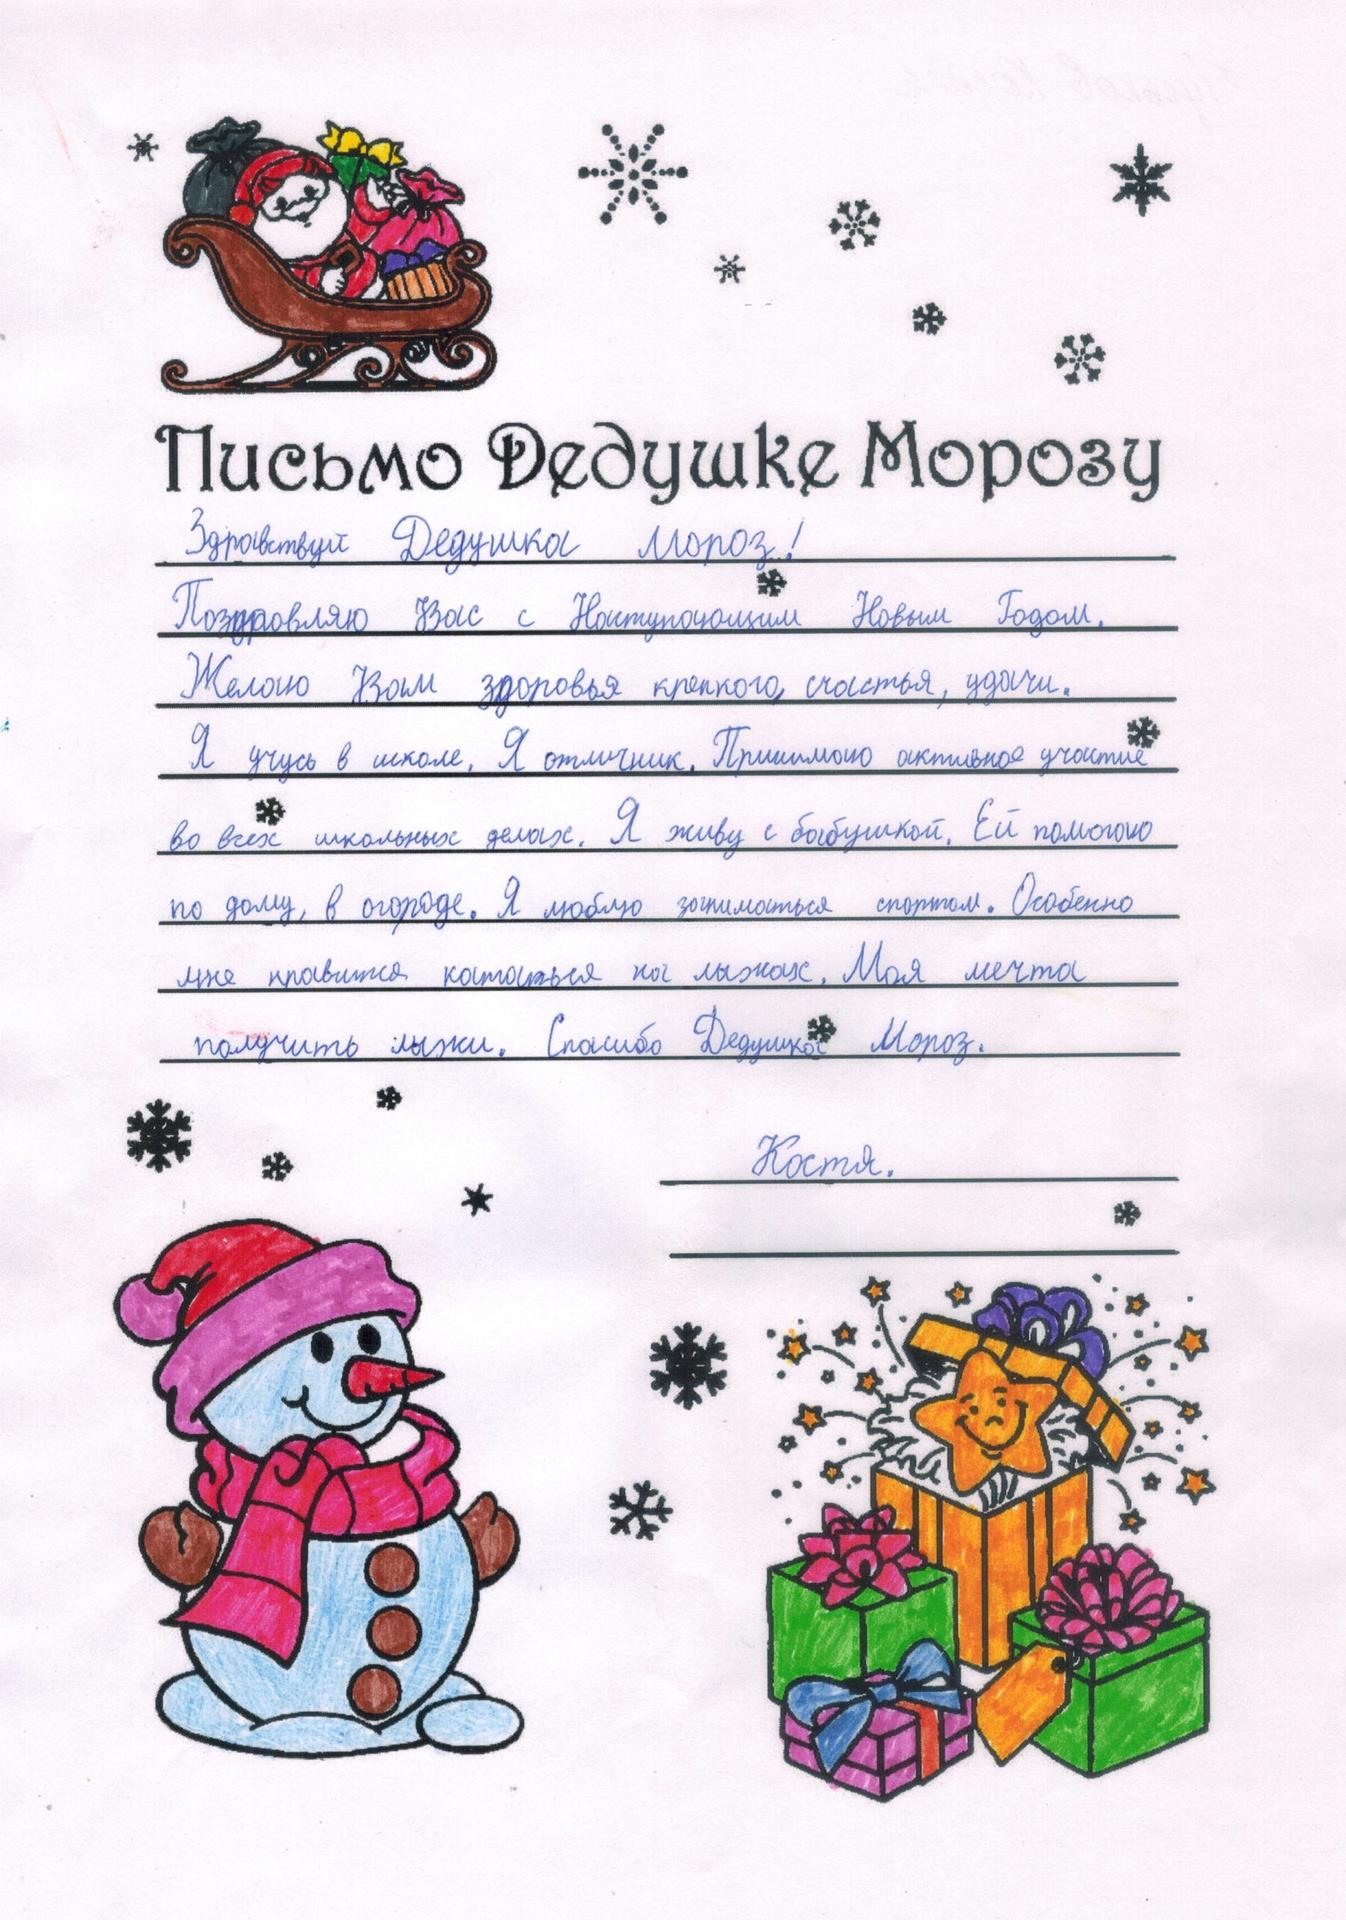 Письмо Дедушке Морозу
Здравствуй Дедушка Мороз!
Поздравляю Вас с Наступающим Новым Годом.
Желаю Вам здоровья крепкого, счастья, удачи.
Я учусь в школе. Я отличник. Принимаю активное участие
во всех школьных делах. Я живу с бабушкой. Ей помогаю
по дому, в огороде. Я люблю заниматься спортом. Особенно
мне нравится кататься на лыжах. Моя мечта
получить лыжи. Спасибо Дедушка Мороз.
Костя.